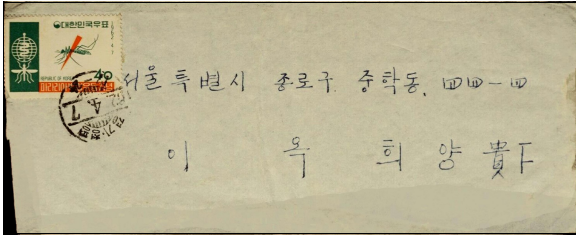 대한민국우표
REPUBLIC OF KOREA
서울특별시 종로구 중학동. 四四一四
이 옥 희 양 貴下
62. 4. 7